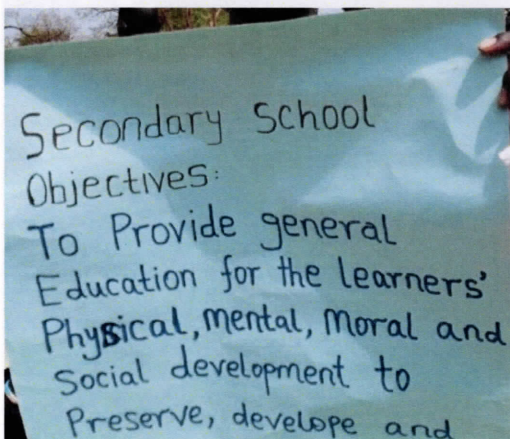 Secondary School
Objectives:
To Provide general
Education for the learners'
Physical, mental, Moral and
Social development to
Preserve, develope and